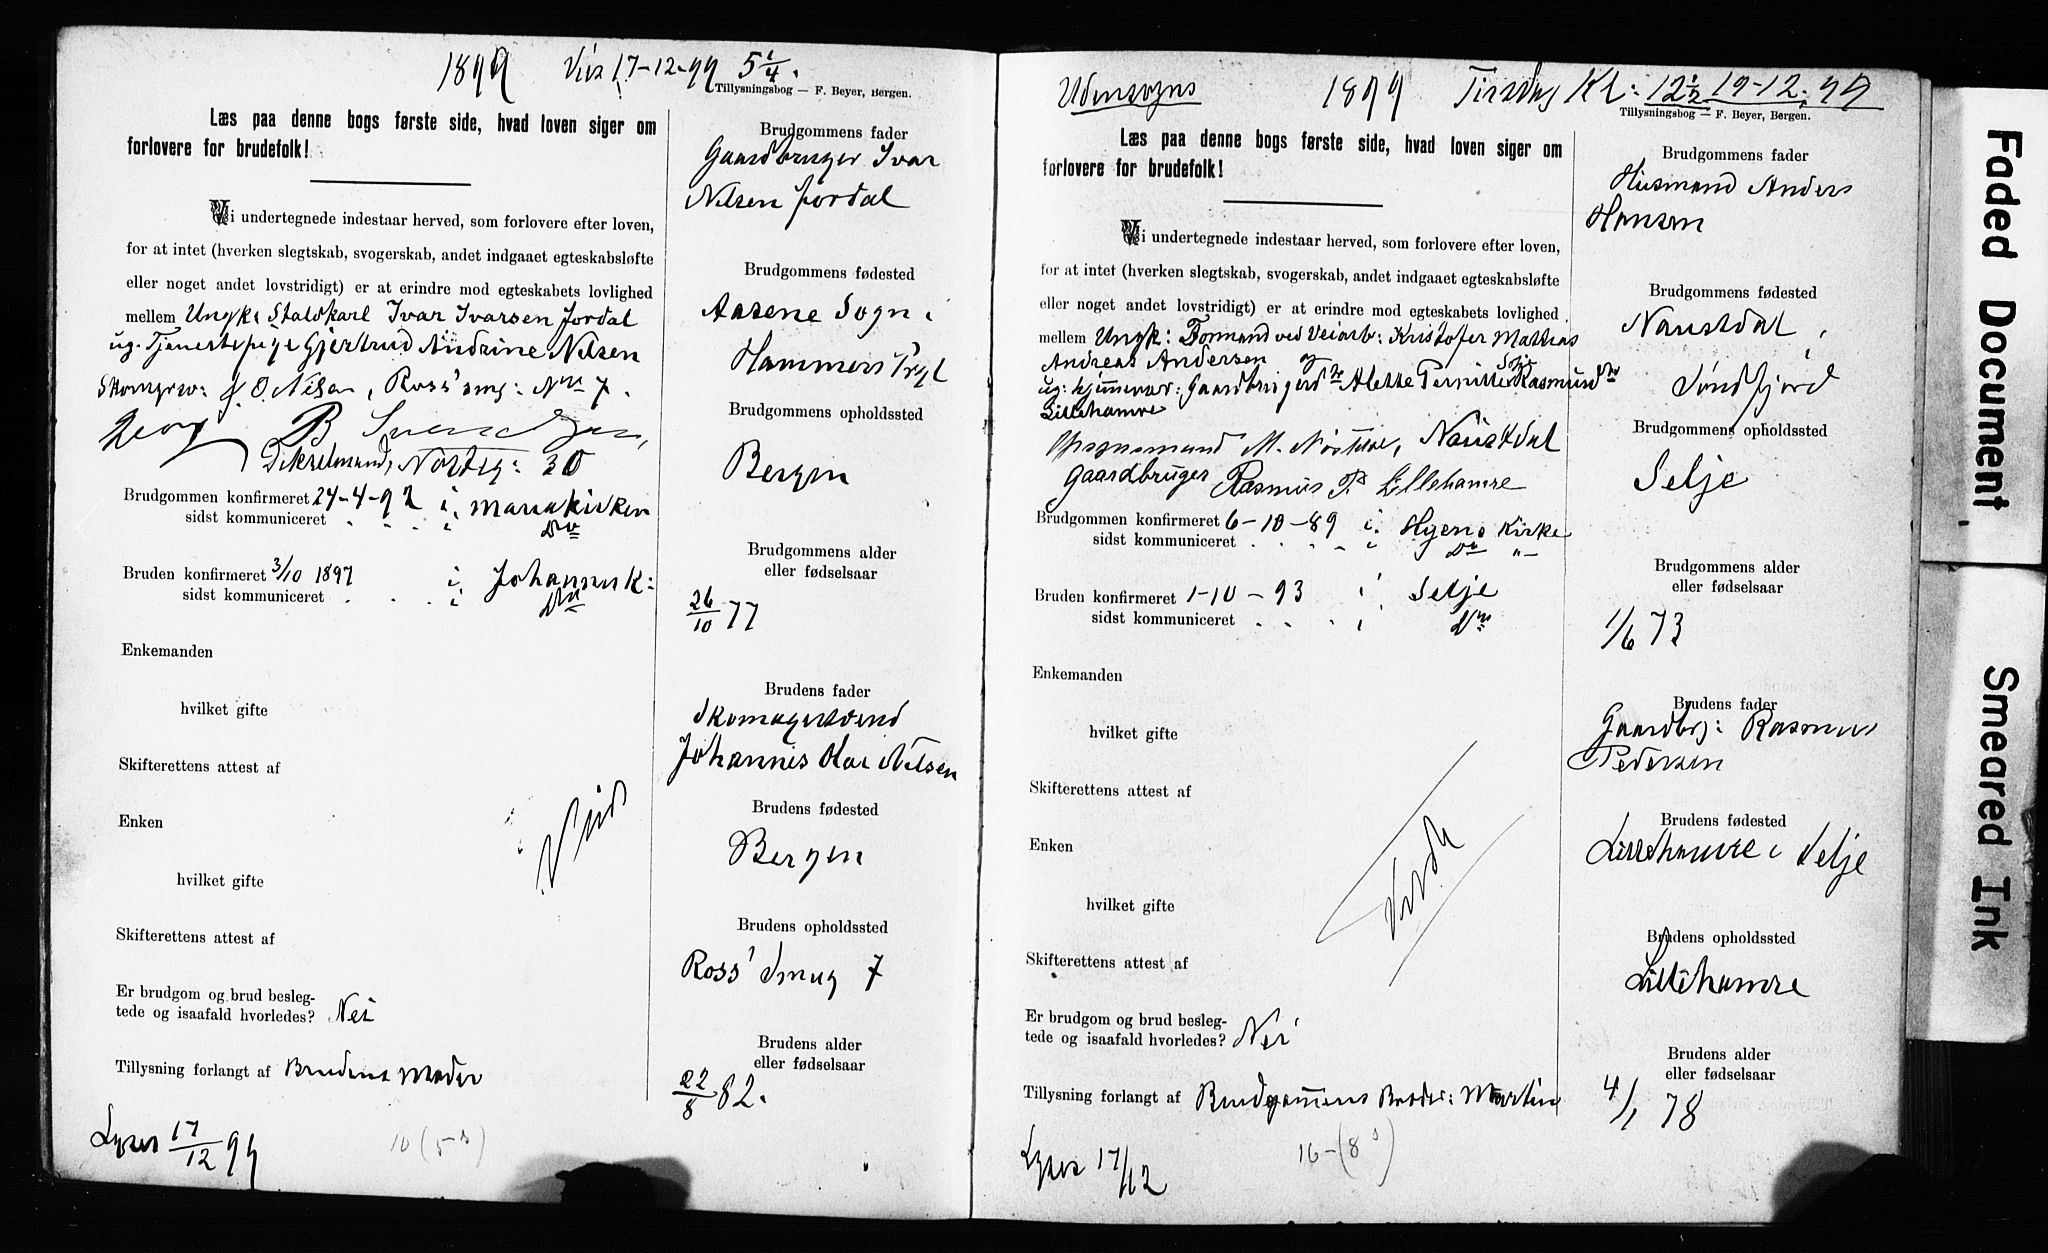 1899 Vies 17-12-99 5 1/4.
Tillysningsbog — F. Beyer, Bergen.
Læs paa denne bogs første side, hvad loven siger om
forlovere for brudefolk!
Vi undertegnede indestaar herved, som forlovere efter loven,
for at intet (hverken slegtskab, svogerskab, andet indgaaet egteskabsløfte
eller noget andet lovstridigt) er at erindre mod egteskabets lovlighed
mellem Ungk: Staldkarl Ivar Ivarsen Jordal
ug. Tjenestepige Gjertrud Andrine Nilsen
J. O. Nilsen, Ross' smg: No 7.
Georg B Svendsen,
Nordig: 30
Brudgommen konfirmeret 24-4-92 i Mariakirken
sidst kommuniceret . . . i Do
Bruden konfirmeret 3/10 1897 i Johannesk:
sidst kommuniceret . . . i Do
Enkemanden
hvilket gifte
Skifterettens attest af
Enken
hvilket gifte
Skifterettens attest af
Viid
Er brudgom og brud besleg-
tede og isaafald hvorledes? Nei
Tillysning forlangt af Brudens Moder
Lyses 17/12 99
10 (5 s)
Brudgommens fader
Gaardbruger Ivar
Nilsen Jordal
Brudgommens fødested
Aasene Sogn i
Hammers Prgl
Brudgommens opholdssted
Bergen
Brudgommens alder
eller fødselsaar
26/10 77
Brudens fader
Skomagersvend
Johannes Olai Nilsen
Brudens fødested
Bergen
Brudens opholdssted
Ross' Smug 7
Brudens alder
eller fødselsaar
22/8 82.
Udensogns 1899 Tirsdag Kl: 12 1/2 19-12-99
Tillysningsbog — F. Beyer, Bergen.
Læs paa denne bogs første side, hvad loven siger om
forlovere for brudefolk!
Vi undertegnede indestaar herved, som forlovere efter loven,
for at intet (hverken slegtskab, svogerskab, andet indgaaet egteskabsløfte
eller noget andet lovstridigt) er at erindre mod egteskabets lovlighed
mellem Ungk: Formand ved Veiarb: Kristofer Mathias
Andreas Andersen og Selje
ug: hjemmevær: Gaardbrugerdtr Alette Pernille Rasmusdtr
Lillehamre
M. Naustdal
Gaardbruger Rasmus P. Lillehamre
Brudgommen konfirmeret 6-10-89 i Hyens Kirke
sidst kommuniceret . . . i Do "
Bruden konfirmeret 1-10-93 i Selje
sidst kommuniceret . . . i Do
Enkemanden
hvilket gifte
Skifterettens attest af
Enken
hvilket gifte
Skifterettens attest af
Er brudgom og brud besleg-
tede og isaafald hvorledes? Nei
Tillysning forlangt af Brudgommens Broder: Martin
Lyses 17/12
16-(8 s)
Brudgommens fader
Husmand Anders
Hansen
Brudgommens fødested
Naustdal i
Søndfjord
Brudgommens opholdssted
Selje
Brudgommens alder
eller fødselsaar
1/6 73
Brudens fader
Gaardbrg: Rasmus
Pedersen
Brudens fødested
Lillehamre i Selje
Brudens opholdssted
Lillehamre
Brudens alder
eller fødselsaar
4/1 78
Faded Document
Smeared Ink